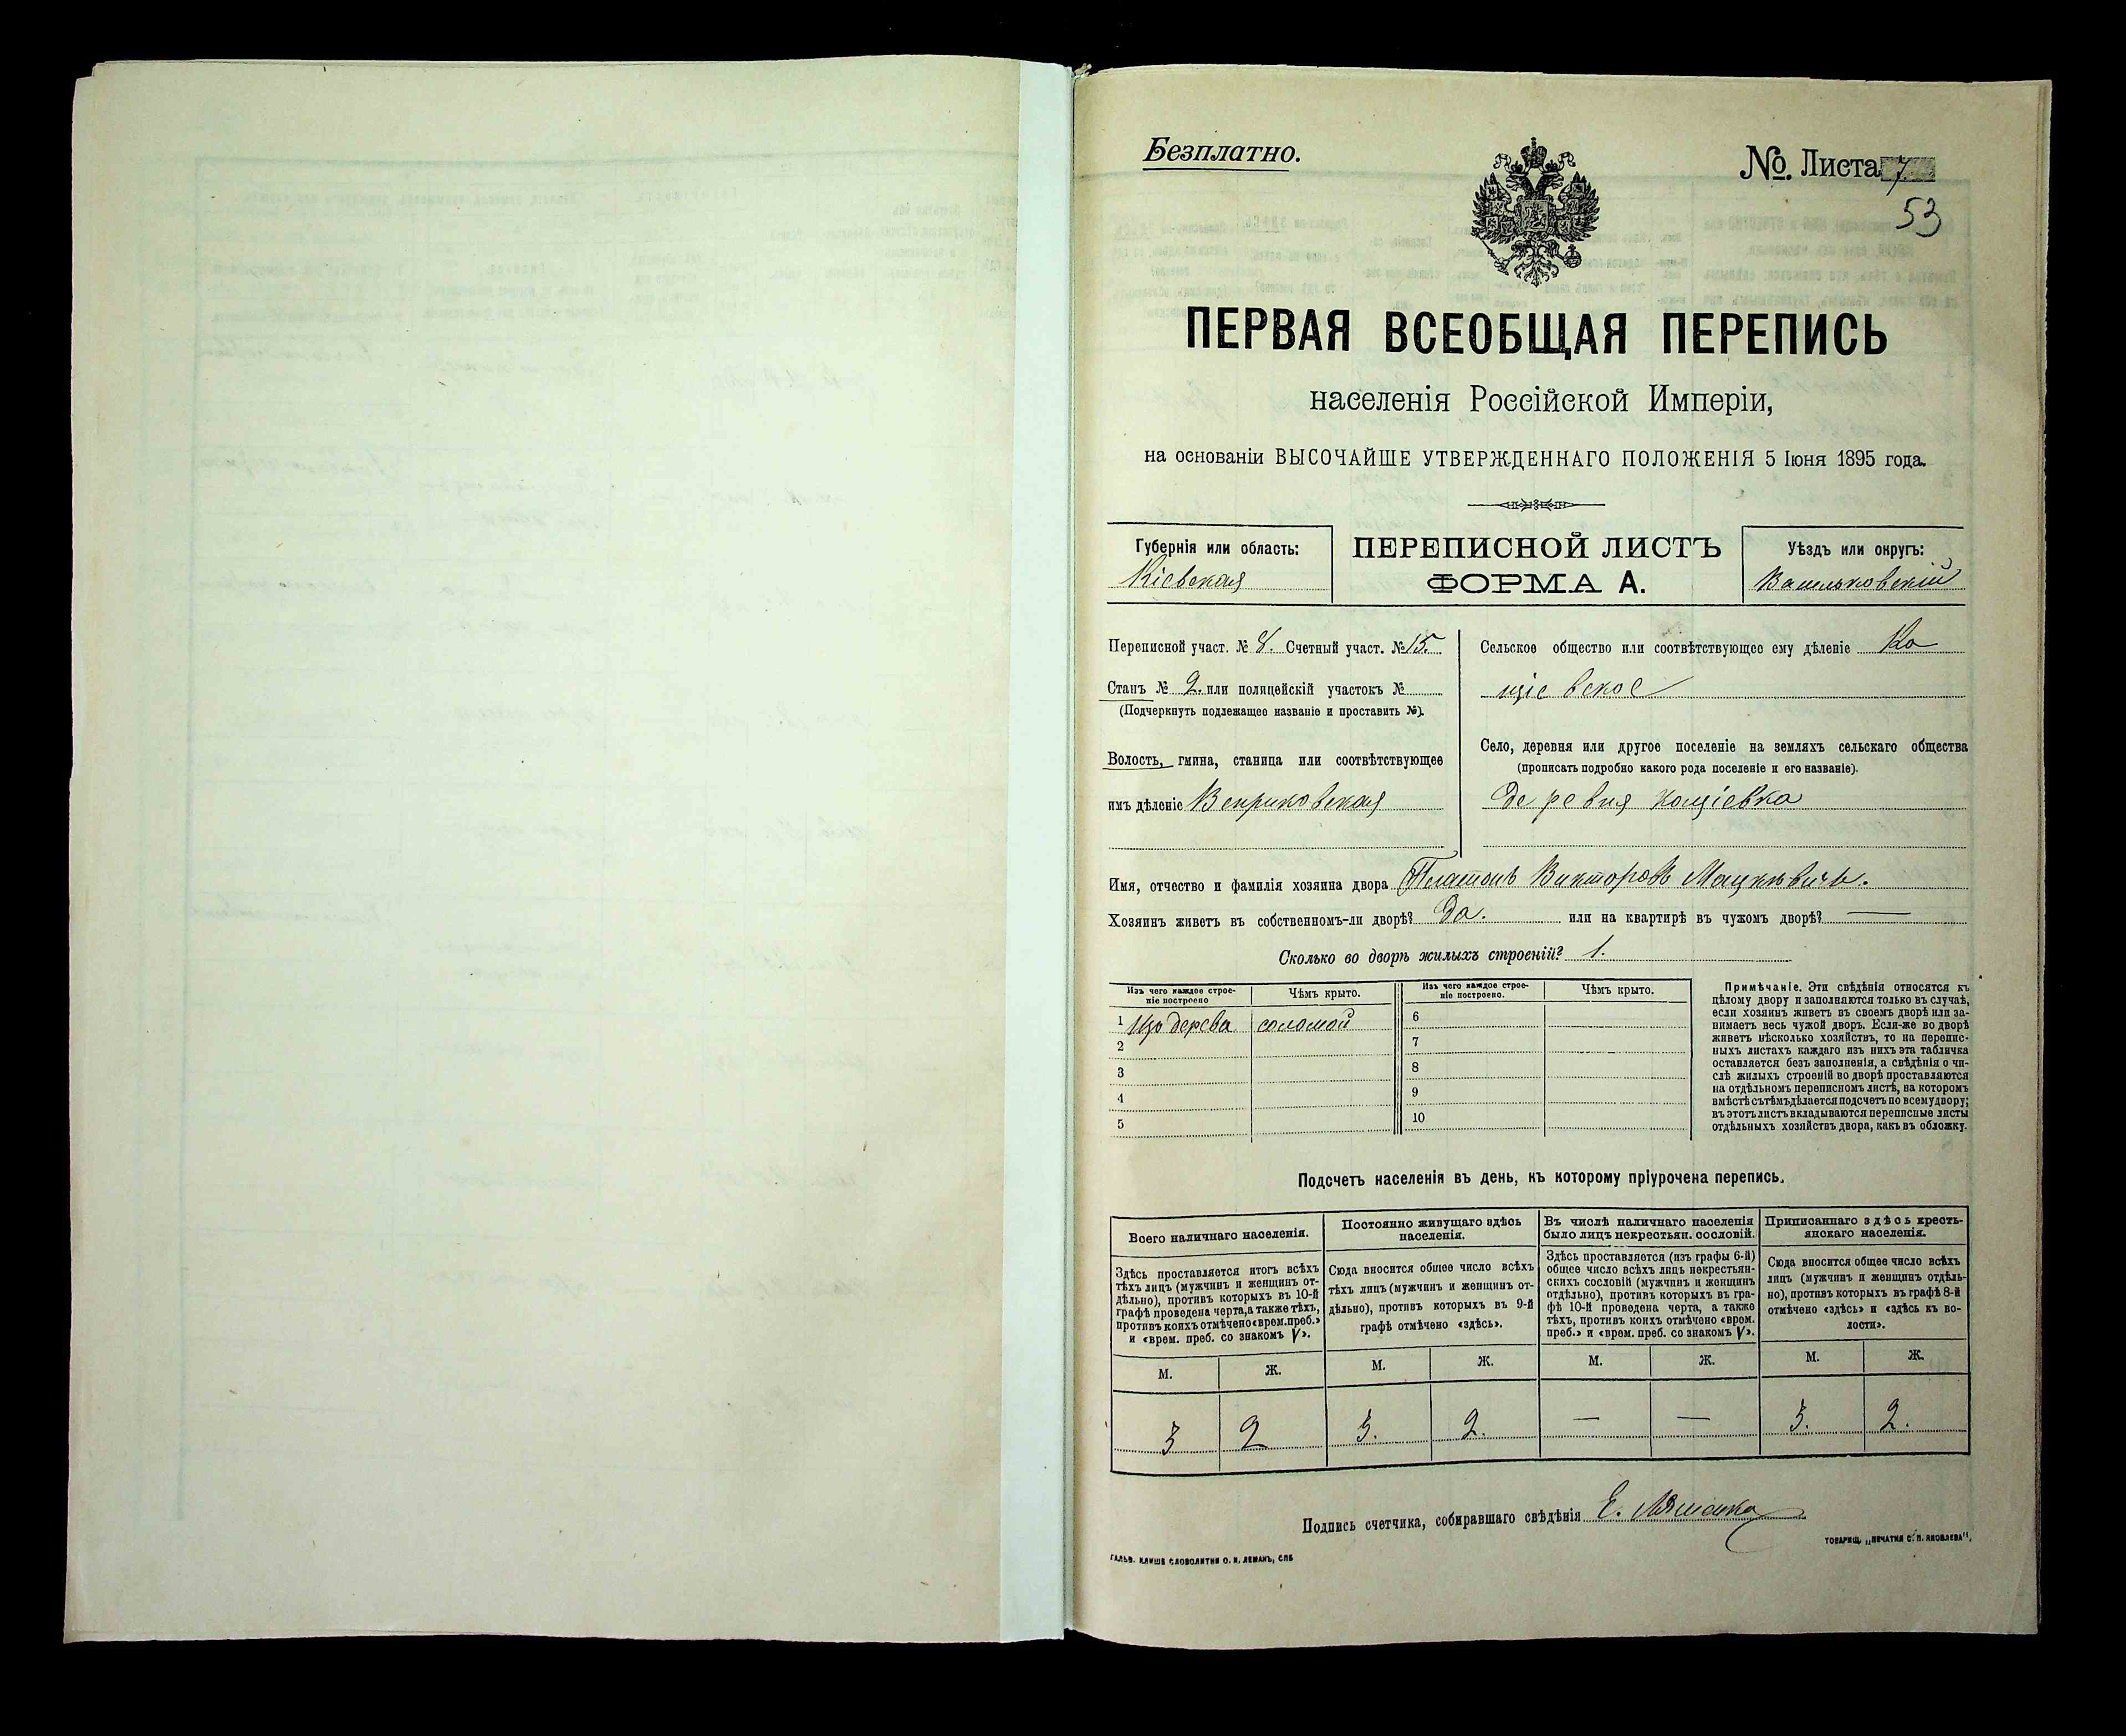 Безплатно.
№ Листа 7.
53
ПЕРВАЯ ВСЕОБЩАЯ ПЕРЕПИСЬ
населенія Россійской Имперіи,
на основаніи ВЫСОЧАЙШЕ УТВЕРЖДЕННАГО ПОЛОЖЕНІЯ 5 Іюня 1895 года.
Губернія или область:
Кіевская
ПЕРЕПИСНОЙ ЛИСТЪ
ФОРМА А.
Уѣздъ или округъ:
Васильковскій
Переписной участ. № 8. Счетный участ. № 15.
Станъ № 2. или полицейскій участокъ №
(Подчеркнуть подлежащее названіе и проставить №).
Волость, гмина, станица или соотвѣтствующее
имъ дѣленіе Веприковская
Сельское общество или соотвѣтствующее ему дѣленіе Ко
щіевское
Село, деревня или другое поселеніе на земляхъ сельскаго общества
(прописать подробно какого рода поселеніе и его названіе).
Деревня Кощіевка
Имя, отчество и фамилія хозяина двора Платонъ Викторовъ Мацкевичъ.
Хозяинъ живетъ въ собственномъ-ли дворѣ? Да. или на квартирѣ въ чужомъ дворѣ? —
Сколько во дворѣ жилыхъ строеній? 1.
Изъ чего каждое строе-
ніе построено
Чѣмъ крыто.
Изъ чего каждое строе-
ніе построено.
Чѣмъ крыто.
1 Изъ дерева соломой
2
3
4
5
6
7
8
9
10
Примѣчаніе. Эти свѣдѣнія относятся къ
цѣлому двору и заполняются только въ случаѣ,
если хозяинъ живетъ въ своемъ дворѣ или за-
нимаетъ весь чужой дворъ. Если-же во дворѣ
живетъ нѣсколько хозяйствъ, то на перепис-
ныхъ листахъ каждаго изъ нихъ эта табличка
оставляется безъ заполненія, а свѣдѣнія о чи-
слѣ жилыхъ строеній во дворѣ проставляются
на отдѣльномъ переписномъ листѣ, на которомъ
вмѣстѣ съ тѣмъ дѣлается подсчетъ по всему двору;
въ этотъ листъ вкладываются переписные листы
отдѣльныхъ хозяйствъ двора, какъ въ обложку.
Подсчетъ населенія въ день, къ которому пріурочена перепись.
Всего наличнаго населенія.
Здѣсь проставляется итогъ всѣхъ
тѣхъ лицъ (мужчинъ и женщинъ от-
дѣльно), противъ которыхъ въ 10-й
графѣ проведена черта, а также тѣхъ,
противъ коихъ отмѣчено «врем. преб.»
и «врем. преб. со знакомъ V».
М. Ж.
3 2
Постоянно живущаго здѣсь
населенія.
Сюда вносится общее число всѣхъ
тѣхъ лицъ (мужчинъ и женщинъ от-
дѣльно), противъ которыхъ въ 9-й
графѣ отмѣчено «здѣсь».
М. Ж.
3. 2.
Въ числѣ наличнаго населенія
было лицъ некрестьян. сословій.
Здѣсь проставляется (изъ графы 6-й)
общее число всѣхъ лицъ некрестьян-
скихъ сословій (мужчинъ и женщинъ
отдѣльно), противъ которыхъ въ гра-
фѣ 10-й проведена черта, а также
тѣхъ, противъ коихъ отмѣчено «врем.
преб.» и «врем. преб. со знакомъ V».
М. Ж.
— —
Приписаннаго здѣсь кресть-
янскаго населенія.
Сюда вносится общее число всѣхъ
лицъ (мужчинъ и женщинъ отдѣль-
но), противъ которыхъ въ графѣ 8-й
отмѣчено «здѣсь» и «здѣсь къ во-
лости».
М. Ж.
3. 2.
Подпись счетчика, собиравшаго свѣдѣнія Е.
ГАЛЬВ. КЛИШЕ СЛОВОЛИТНИ О. И. ЛЕМАНЪ, СПБ
ТОВАРИЩ. „ПЕЧАТНЯ С. П. ЯКОВЛЕВА“.